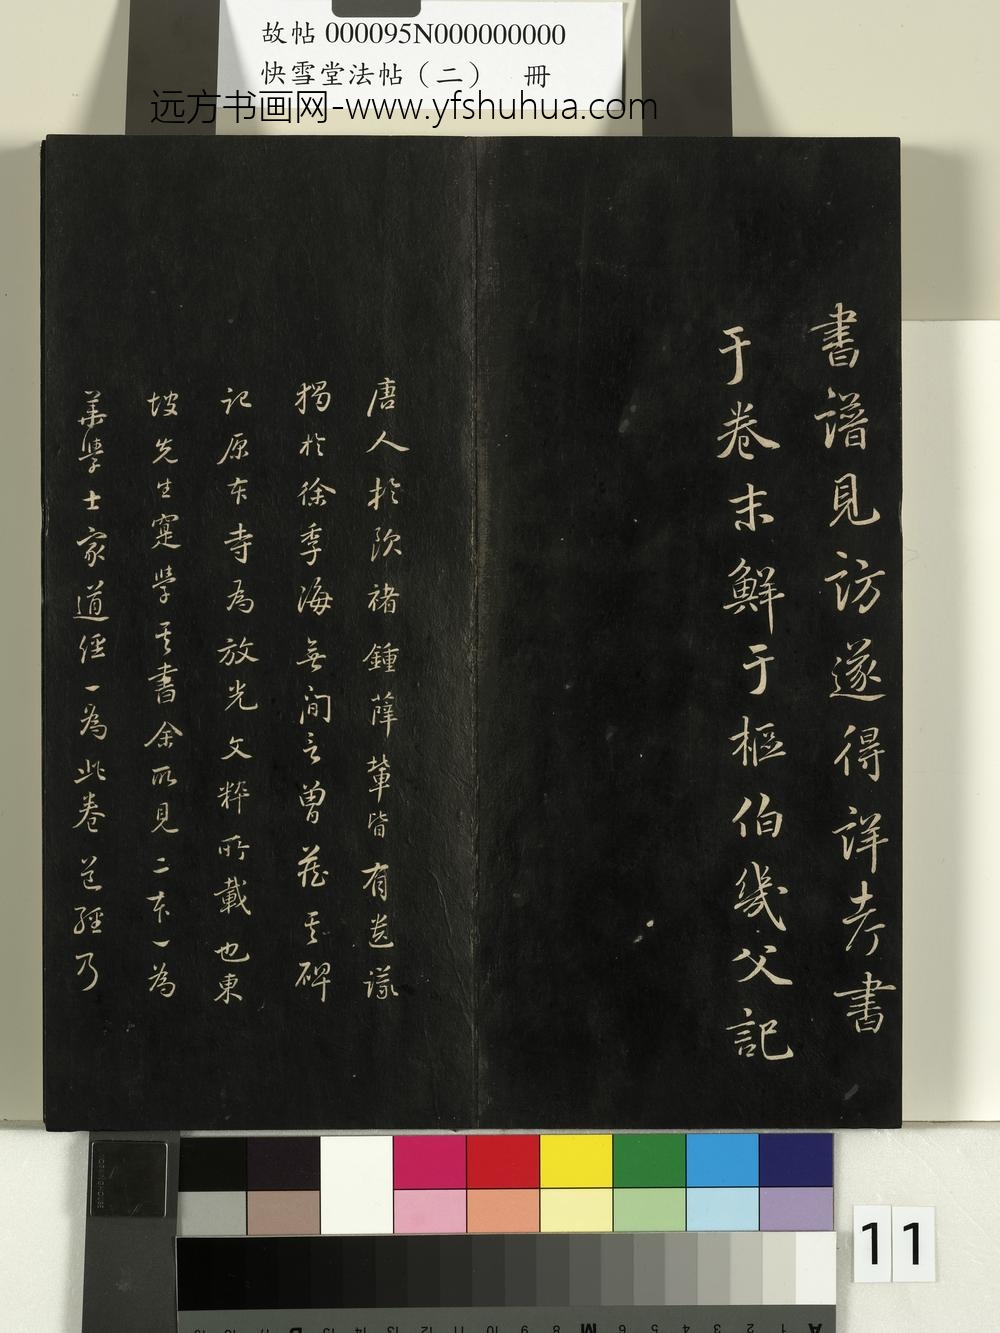 故帖 000095N000000000
快雪堂法帖（二） 冊
远方书画网-www.yfshuhua.com
書譜見訪遂得詳考書
于卷末鮮于樞伯幾父記
唐人於欧褚鍾薛輩皆有遺議
獨於徐季海無间言曾蔵其碑
记原本寺為放光文粹所載也東
坡先生寔學其書余所見二本一為
華學士家道經一為此卷道經乃
11